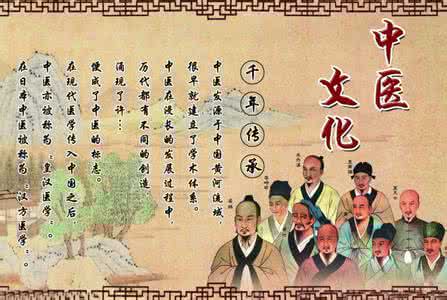 中医
文化
千年传承
中医发源于中国黄河流域
很早就建立了学术体系。
中医在漫长的发展过程中
历代都有不同的创造
涌现了许…
便成了中医的标志。
在现代医学传入中国之后，
中医亦被称为：皇汉医学：。
在日本中医被称为：汉方医学：。